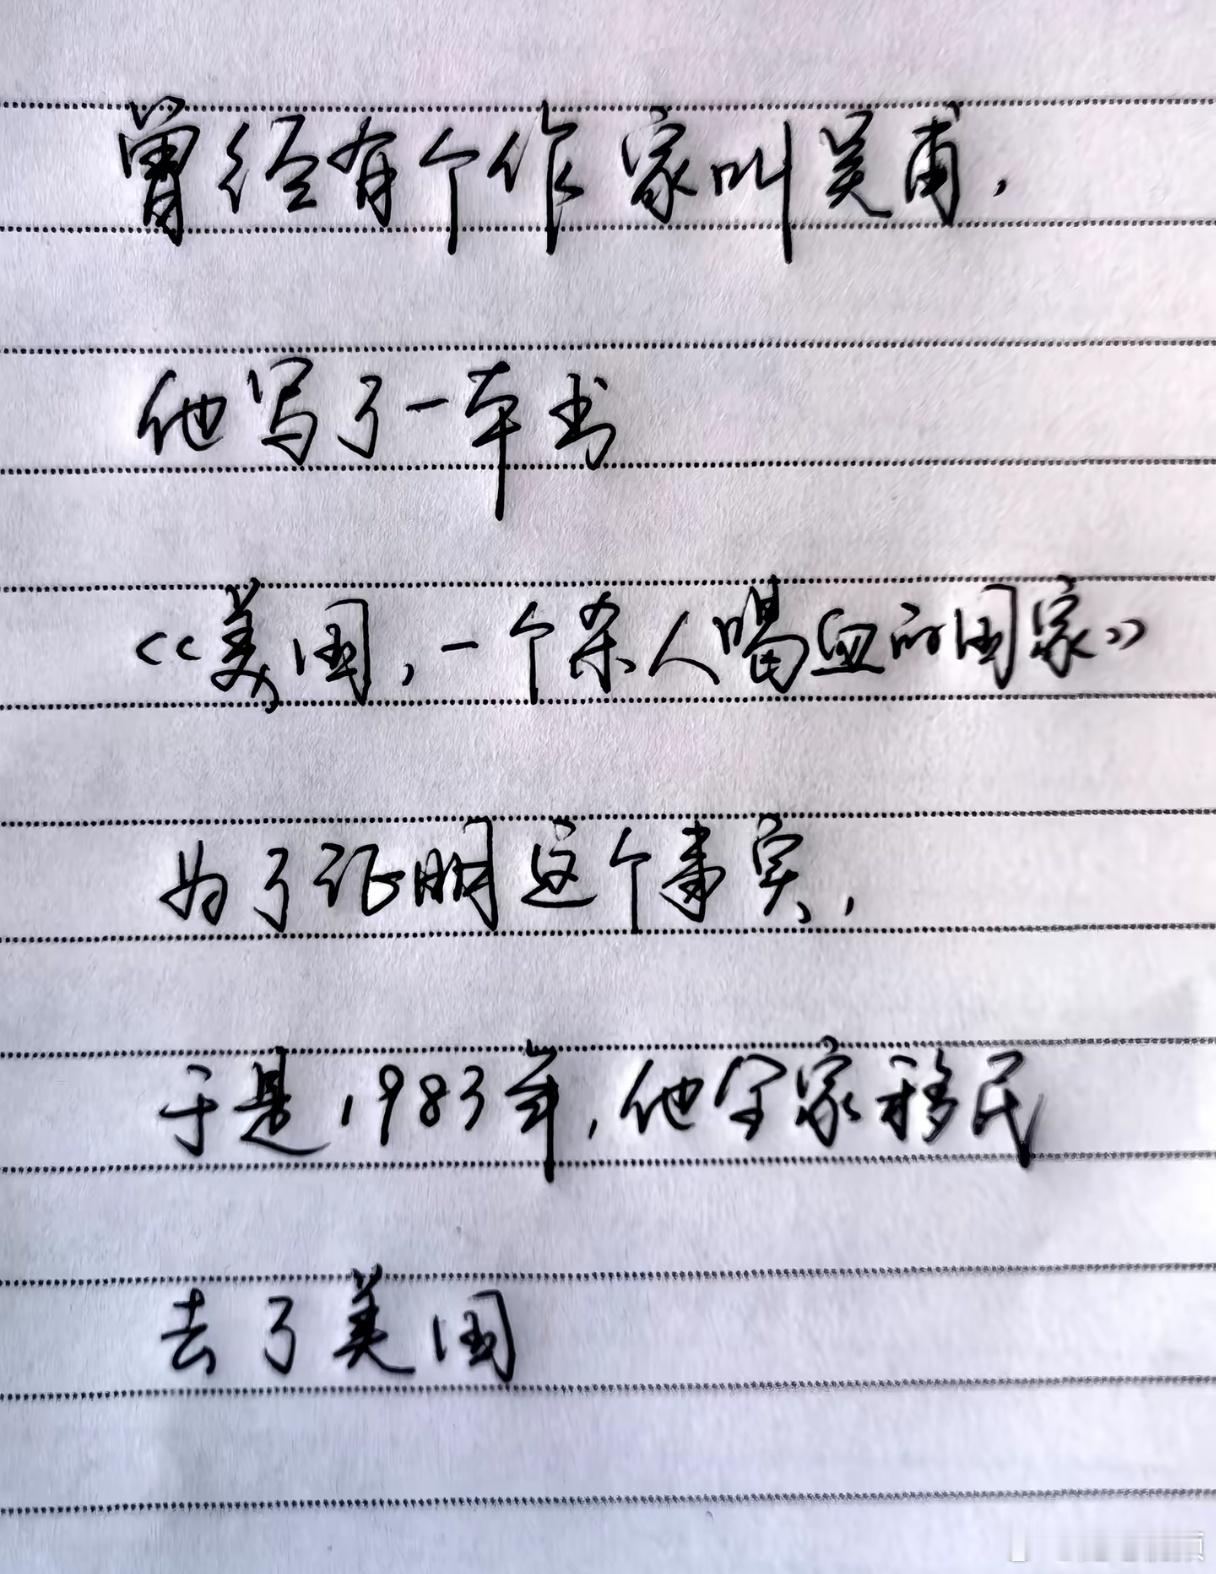 曾经有个作家叫吴甫,
他写了一本书
《美国,一个杀人喝血的国家》
为了证明这个事实,
于是1983年,他全家移民
去了美国